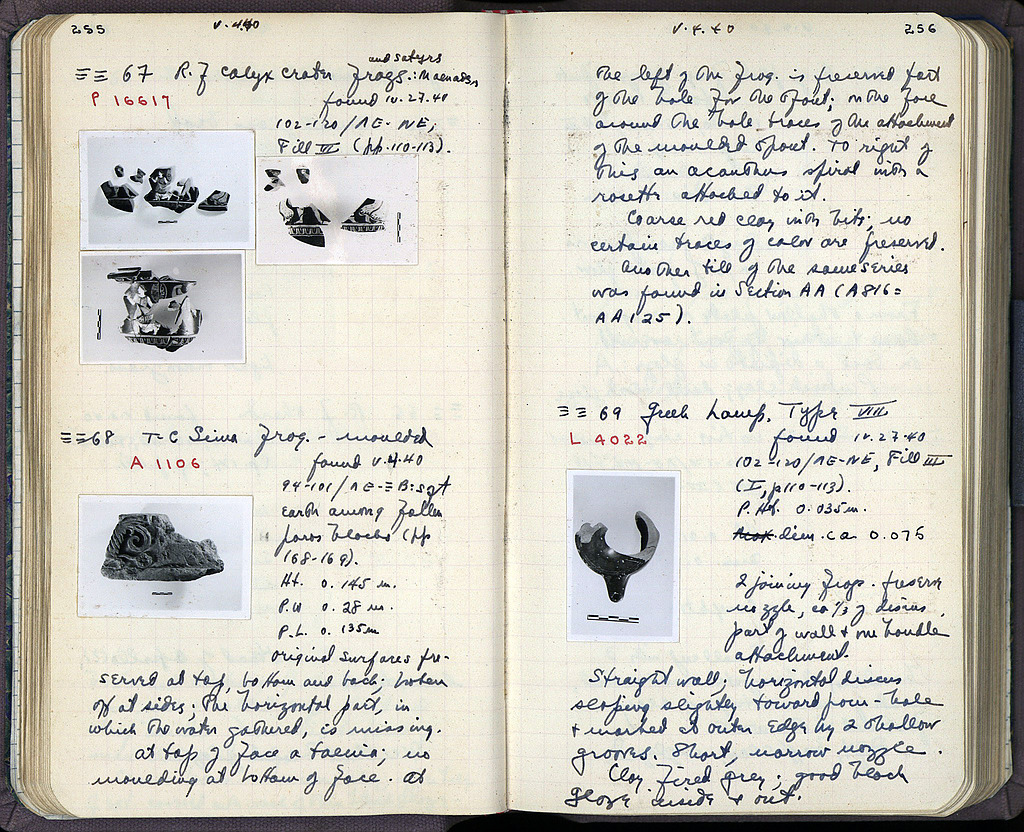 255
V.4.40
ΞΞ 67 R.F calyx crater Frags.: Maenads,
and satyrs
P 16617
found IV.27.40
102-120/ΛΕ-ΝΕ;
Fill III (pp.110-113).
ΞΞ68 T-C Sima Frag. - moulded
A 1106
found V.4.40
94-101/ΛΕ-Ξ B: soft
earth among fallen
poros blocks (pp
168-169).
Ht. 0.145 m.
P.W 0.28 m.
P.L. 0.135m
original surfaces pre-
served at top, bottom and back; broken
off at sides; the horizontal part, in
which the water gathered, is missing.
at top of face a taenia; no
moulding at bottom of face. At
V.4.40
256
the left of the frag. is preserved part
of the hole for the spout; on the face
around the hole traces of the attachment
of the moulded spout. To right of
this an acanthus spiral with a
rosette attached to it.
Coarse red clay with bits; no
certain traces of color are preserved.
Another tile of the same series
was found in Section AA (A816=
AA125).
ΞΞ 69 Greek Lamp. Type VII
L 4022
found IV.27.40
102-120/ΛΕ-ΝΕ, Fill III
(I, p110-113).
P.Ht. 0.035m.
Max. diam. ca 0.075
2 joining frags. preserve
nozzle, ca 1/3 of discus,
part of wall + one handle
attachment.
Straight wall; horizontal discus
sloping slightly toward pour-hole
+ marked at outer edge by 2 shallow
grooves. Short, narrow nozzle.
Clay fired grey; good black
glaze inside + out.